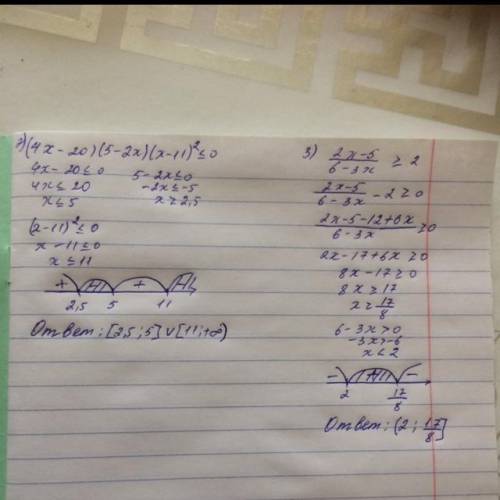 2) (4x-20)(5-2x)(x-11)² ≤ 0
4x-20 ≤ 0    5-2x ≤ 0
4x ≤ 20    -2x ≤ -5
x ≤ 5    x ≥ 2,5
(x-11)² ≤ 0
x-11 ≤ 0
x ≤ 11
+ + 
2,5 5 11
Ответ: [2,5; 5] ∪ [11; +∞)
3) (2x-5)/(6-3x) ≥ 2
(2x-5)/(6-3x) - 2 ≥ 0
(2x-5-12+6x)/(6-3x) ≥ 0
2x-17+6x ≥ 0
8x-17 ≥ 0
8x ≥ 17
x ≥ 17/8
6-3x > 0
-3x > -6
x < 2
- + -
2 17/8
Ответ: (2; 17/8]